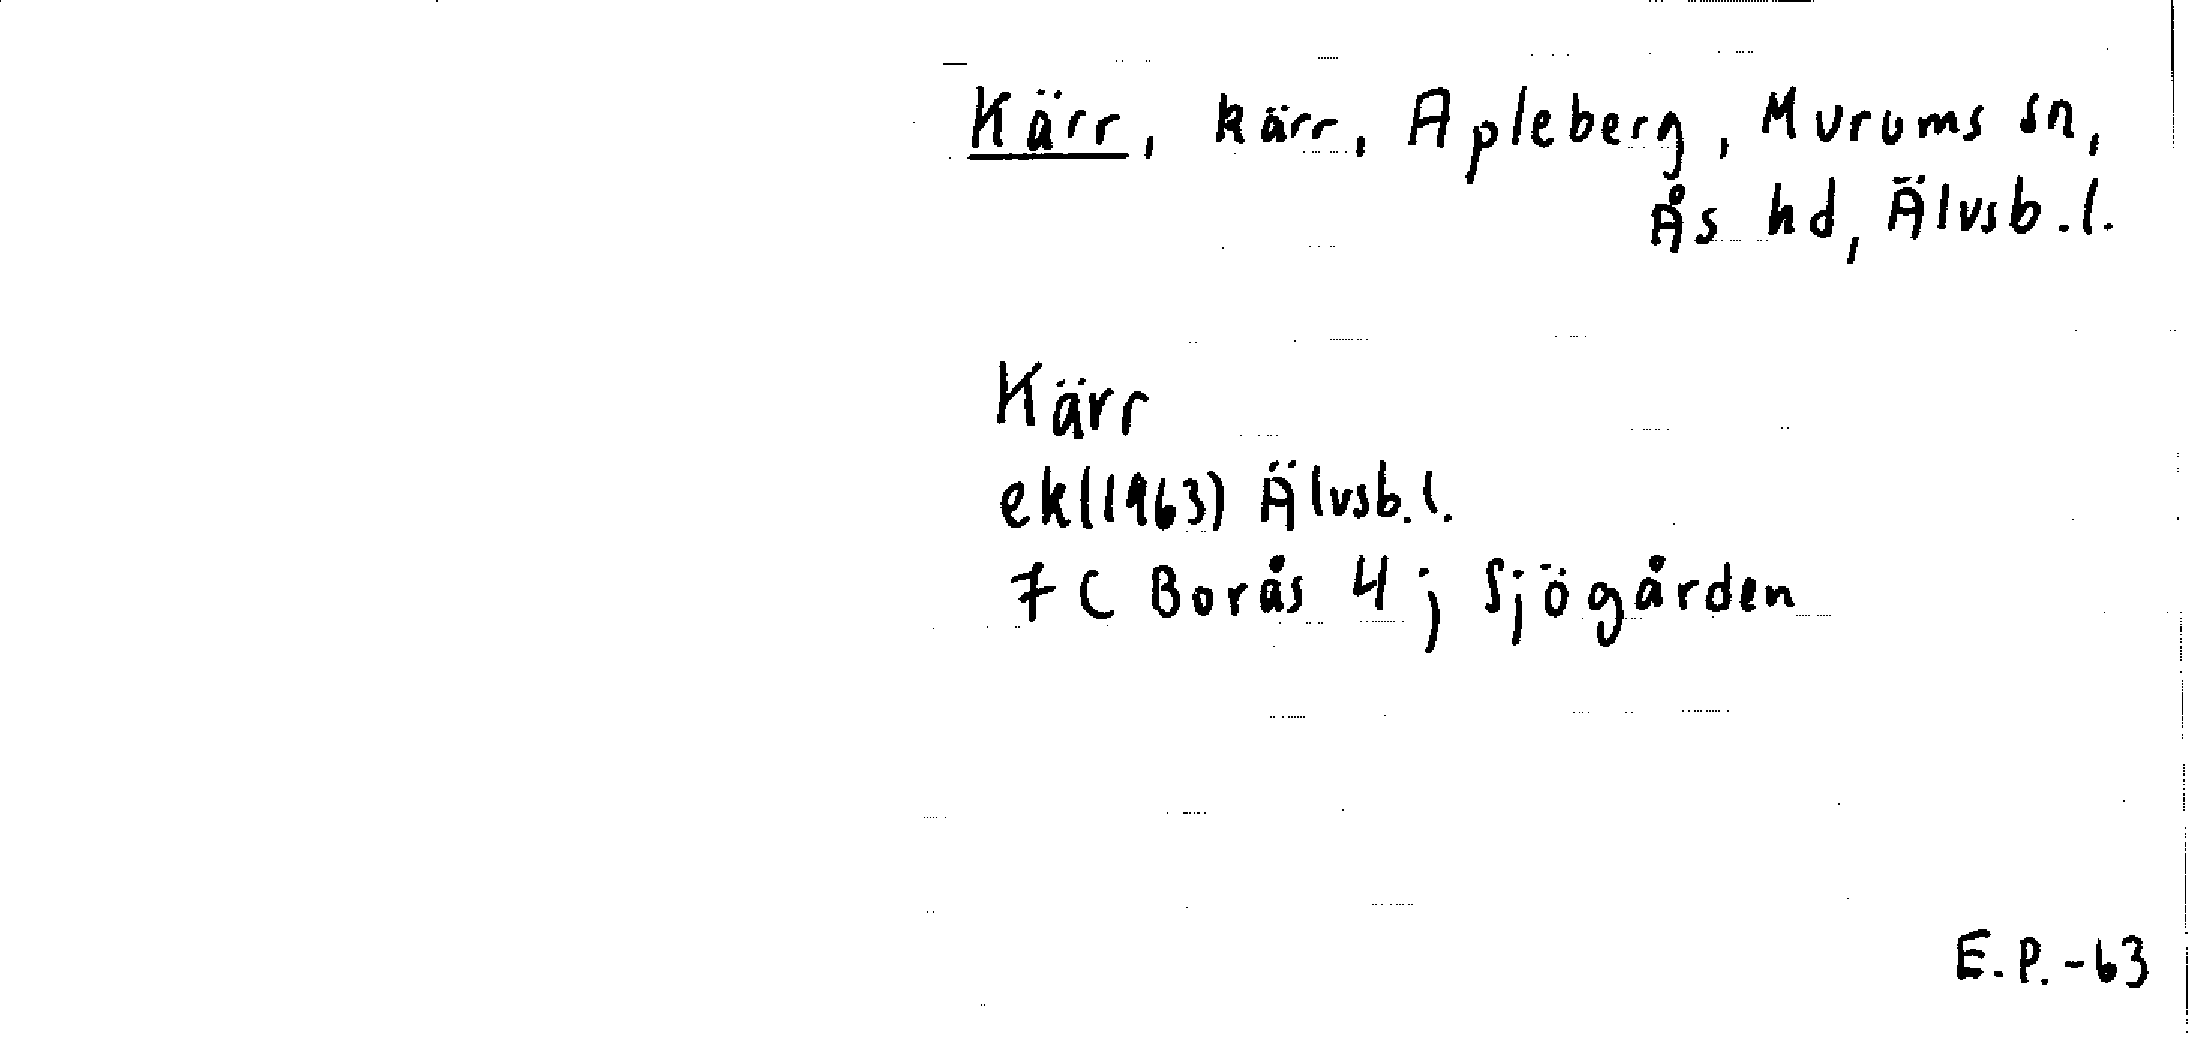 Kärr, kärr, Apleberg, Murums sn,
Ås hd, Älvsb.l.
Kärr
ek(1963) Älvsb.l.
7C Borås 4j Sjögården
E.P.-63